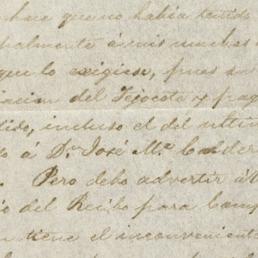 hace que no habia tenido
palmente á mis muchas
que lo exigiese, pues
cion del Tejocote y frag
dido, incluso el del ultim
á Dn José Ma. Calder
Pero debo advertir á
del Recibo para Camp
tiene el inconveniente